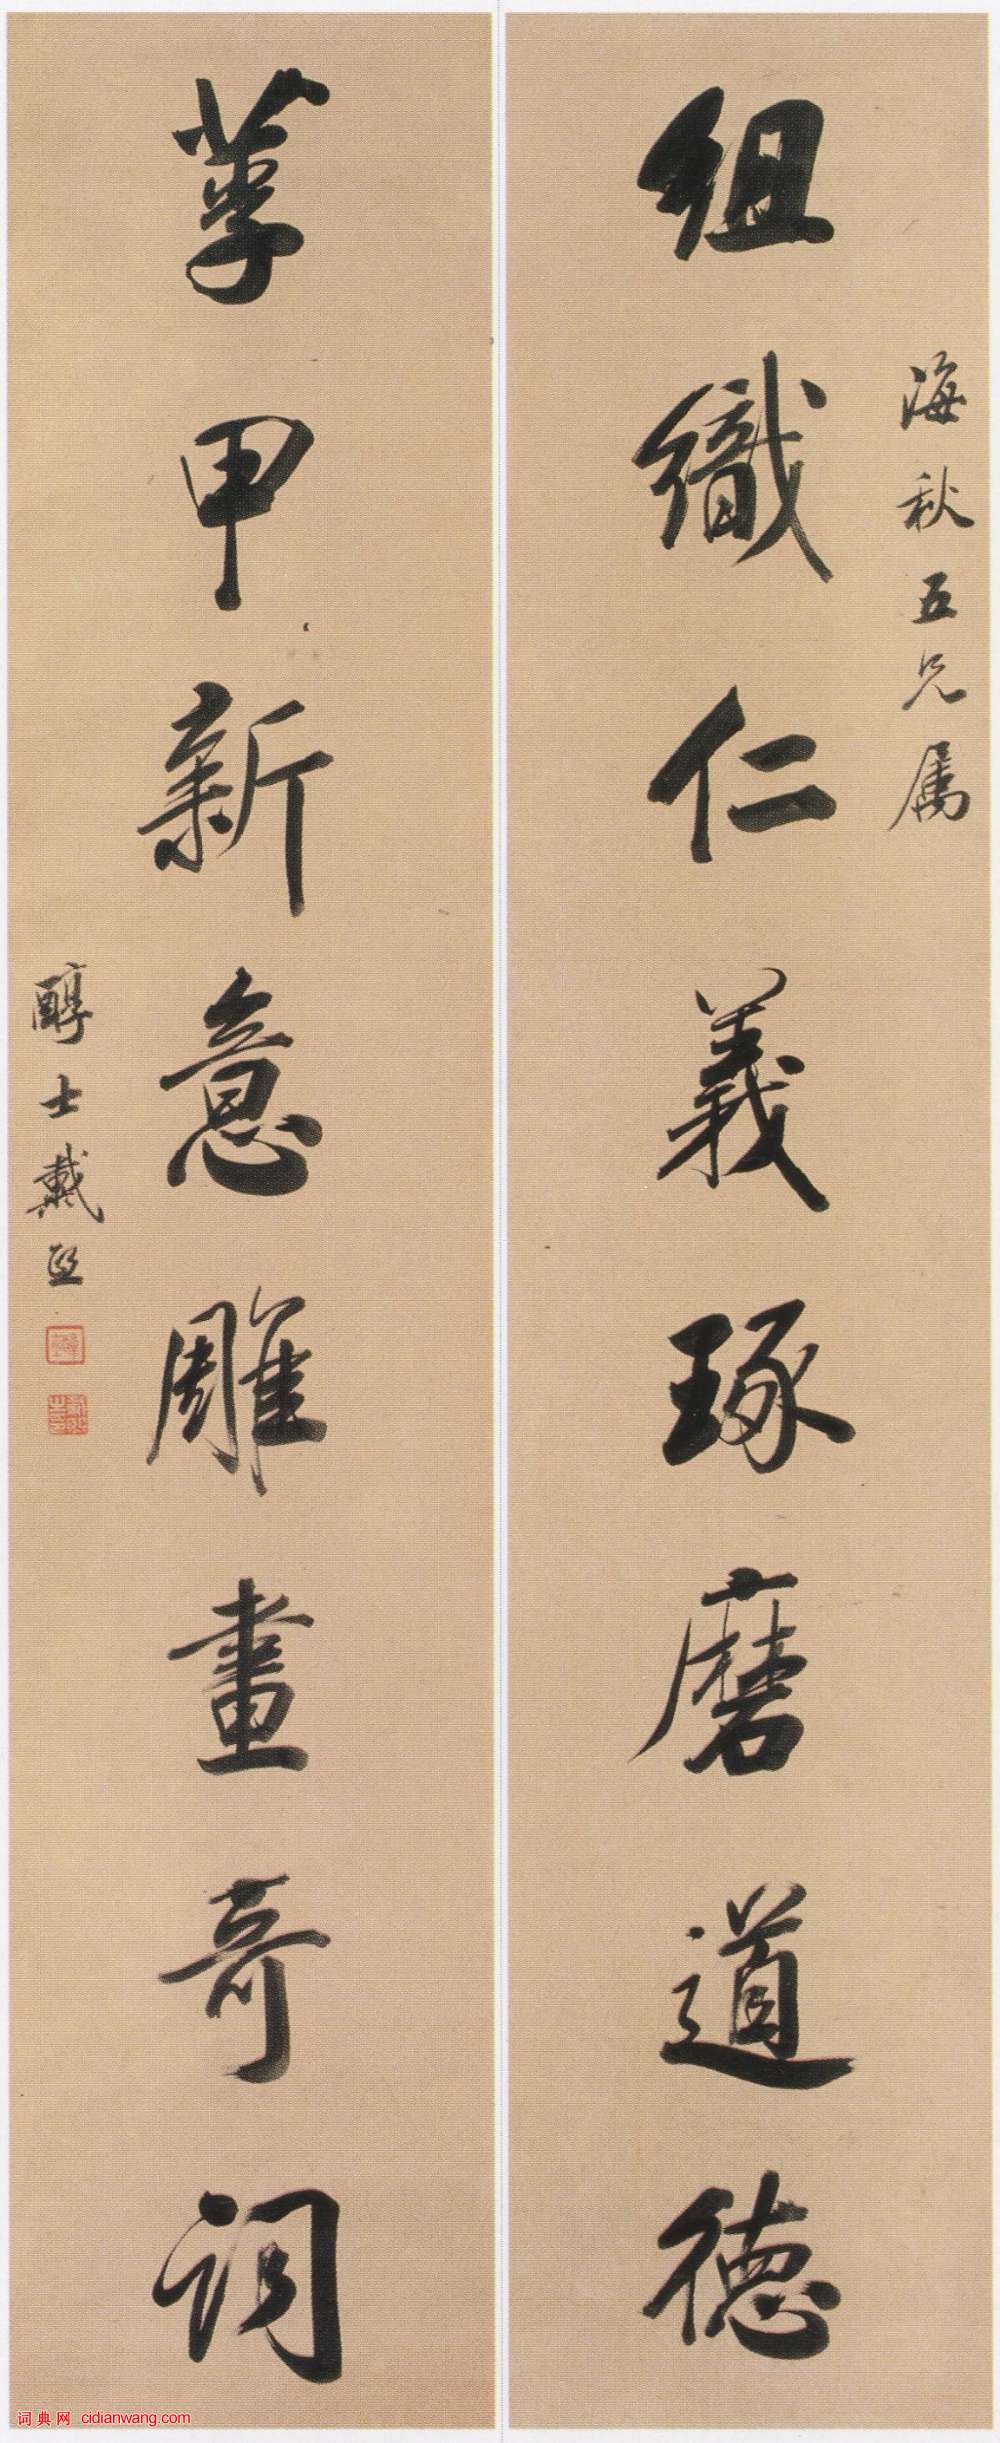 海秋五兄属
組織仁義琢磨道德
莩甲新意雕畫奇詞
醇士戴熙
词典网 cidianwang.com